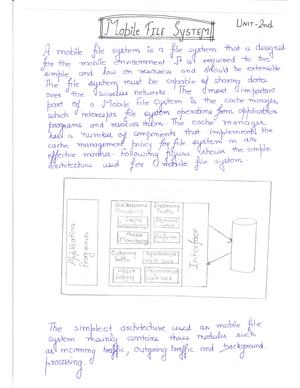 MOBILE FILE SYSTEM
UNIT-2nd
A mobile file system is a file system that is designed
for the mobile environment. It is required to be
simple and low on resources and should be extensible
The file system must be capable of sharing data
over the wireless networks. The most important
part of a Mobile File System is the cache manager,
which intercepts file system operations from application
programs and resolves them. The cache manager
has a number of components that implements the
cache management policy for file system in an
effective manner. Following figure shows the simple
architecture used for mobile file system.
Application
Program
Background
Processing
Cache
Mobile
Monitoring
Incoming
Traffic
Demand
Outgoing
Traffic
Update
Logging
Synchronous
Write back
Asynchronous
Write back
Interface
The simplest architecture used as mobile file
system mainly contains three modules such
as incoming traffic, outgoing traffic and background
processing.